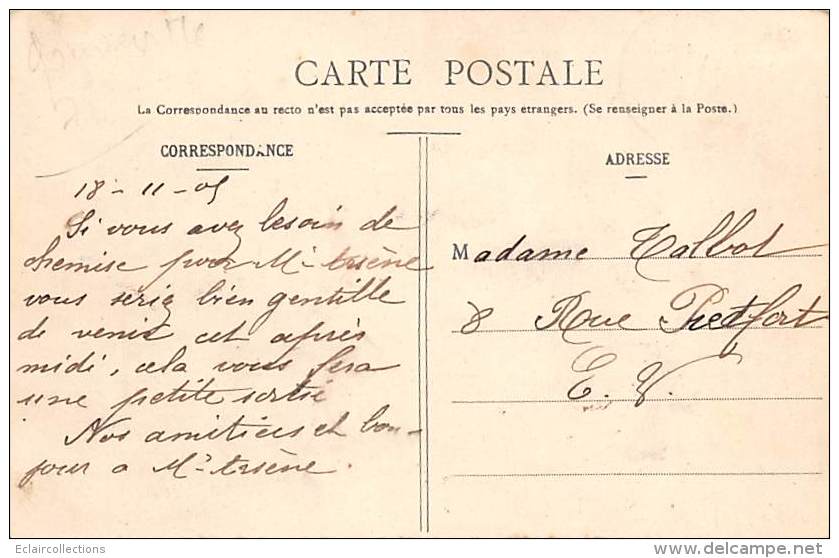 CARTE POSTALE
La Correspondance au recto n'est pas acceptée par tous les pays etrangers. (Se renseigner à la Poste.)
CORRESPONDANCE
18-11-05
Si vous avez besoin de
chemise pour Mr Arsène
vous seriez bien gentille
de venir cet après
midi, cela vous fera
une petite sortie
Nos amitiées et bon-
jour a Mr Arsène.
ADRESSE
Madame Talbot
8 Rue Piedfort
E. V.
Eclaircollections
www.delcampe.net